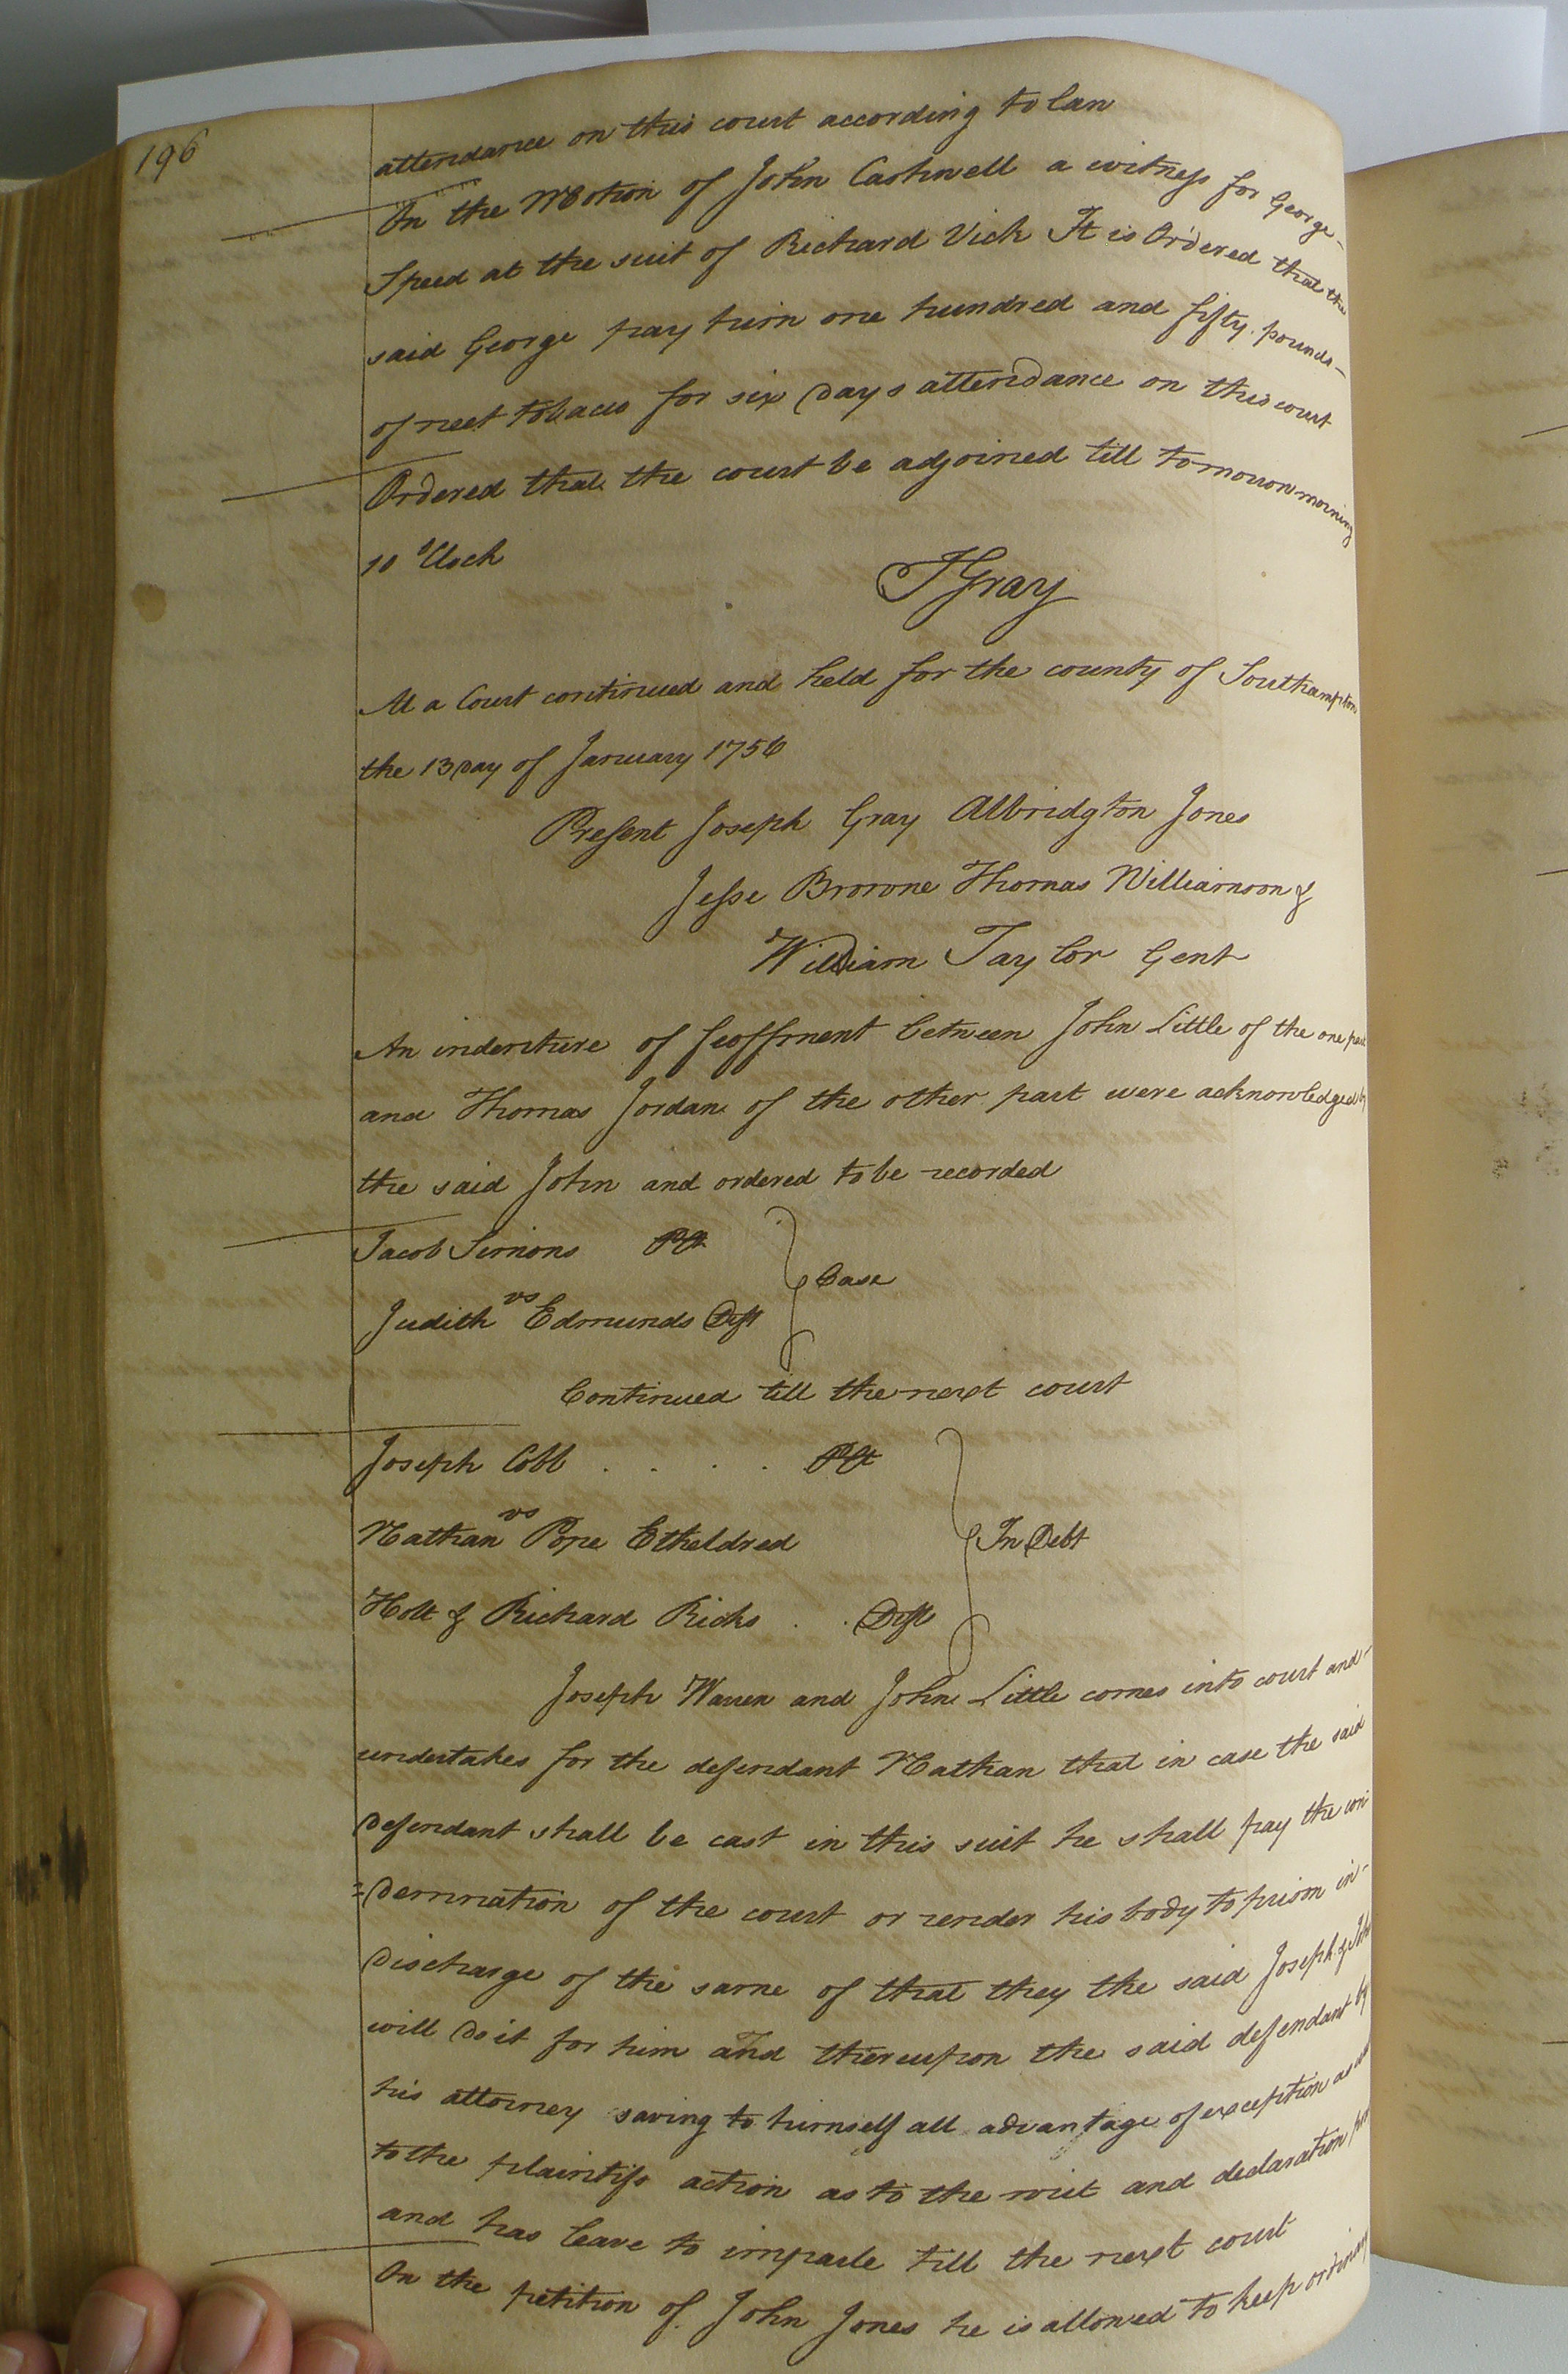 196
attendance on this court according to law
On the Motion of John Cashwell a witness for George
Speed at the suit of Richard Vick It is Ordered that the
said George pay him one hundred and fifty pounds
of neet tobacco for six days attendance on this court
Ordered that the court be adjoined till tomorrow morning
10 'Clock
JGray
At a Court continued and held for the county of Southampton
the 13 Day of January 1756
Present Joseph Gray Albridgton Jones
Jesse Browne Thomas Williamson &
William Taylor Gent
An indenture of feoffment between John Little of the one part
and Thomas Jordan of the other part were acknowledged by
the said John and ordered to be recorded
Jacob Simons Plt
vs
Judith Edmunds Deft
Case
Continued till the next court
Joseph Cobb . . . . Plt
vs
Nathan Pope Etheldred
In Debt
Holt & Richard Ricks . . Defts
Joseph Warren and John Little comes into court and
undertakes for the defendant Nathan that in case the said
Defendant shall be cast in this suit he shall pay the con
=demnation of the court or render his body to prison in
Discharge of the same of that they the said Joseph & John
will do it for him and thereupon the said defendant by
his attorney saving to himself all advantage of exception as well
to the plaintifs action as to the writ and declaration
and has leave to imparle till the next court
On the petition of John Jones he is allowed to keep ordinary